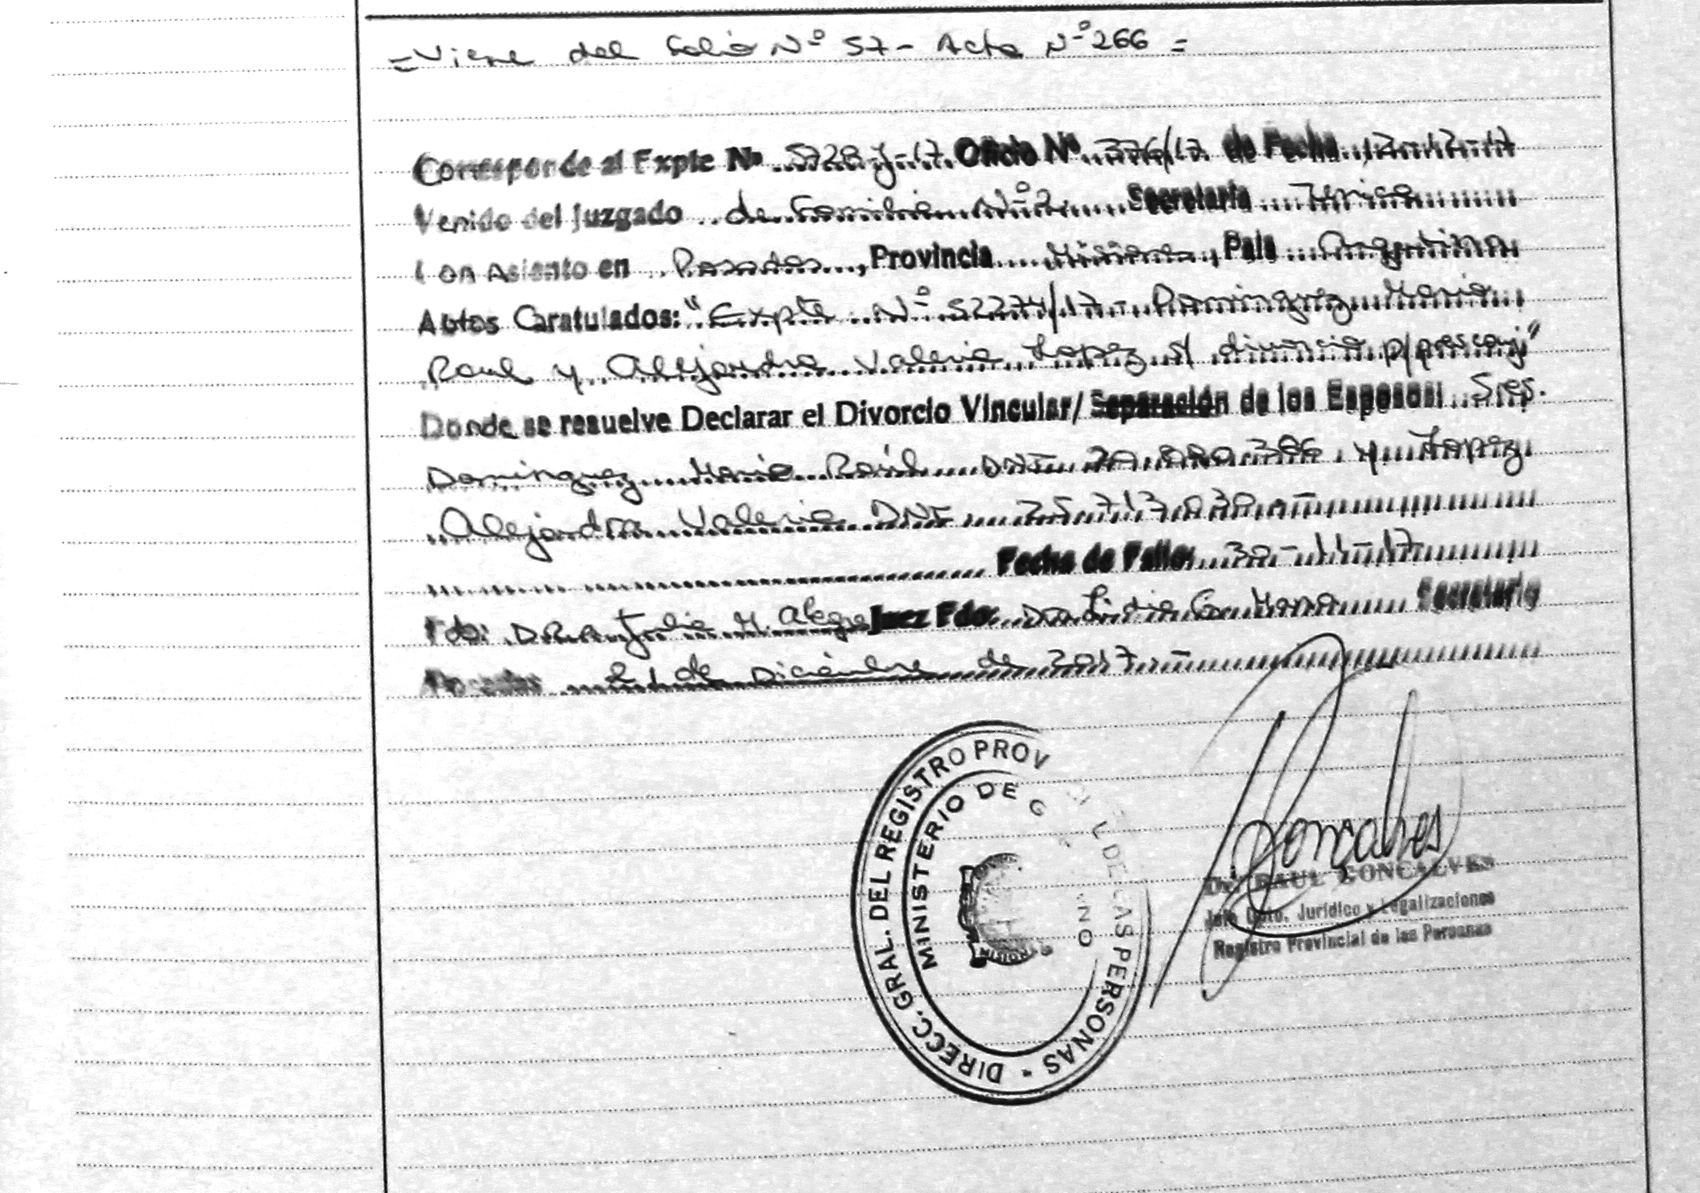 = Viene del folio Nº 57 - Acta Nº 266 =
Corresponde al Expte Nº 5728-J-17 Oficio Nº 376/17 de Fecha 12-12-17
Venido del Juzgado de Familia Nº 2 Secretaria Unica
Con Asiento en Posadas, Provincia Misiones, Pais Argentina
Autos Caratulados: "Expte Nº 52274/17 - Dominguez Mario
Raul y Alejandra Valeria Lopez s/ divorcio p/
Donde se resuelve Declarar el Divorcio Vincular/ Separación de los Esposos: Sres.
Dominguez Mario Raúl DNI y Lopez
Alejandra Valeria DNI 25.713.030.-
Fecha de Fallo: 30-11-17
Fdo: Dra. Julia M. Alegre Juez Fdo: Dra Lidia Secretaria
Posadas 21 de Diciembre de 2017.-
DIRECC. GRAL. DEL REGISTRO PROV DE LAS PERSONAS -
MINISTERIO DE G NO
Gonçalves
Dr. RAUL GONCALVES
Jefe Dpto. Jurídico y Legalizaciones
Registro Provincial de las Personas